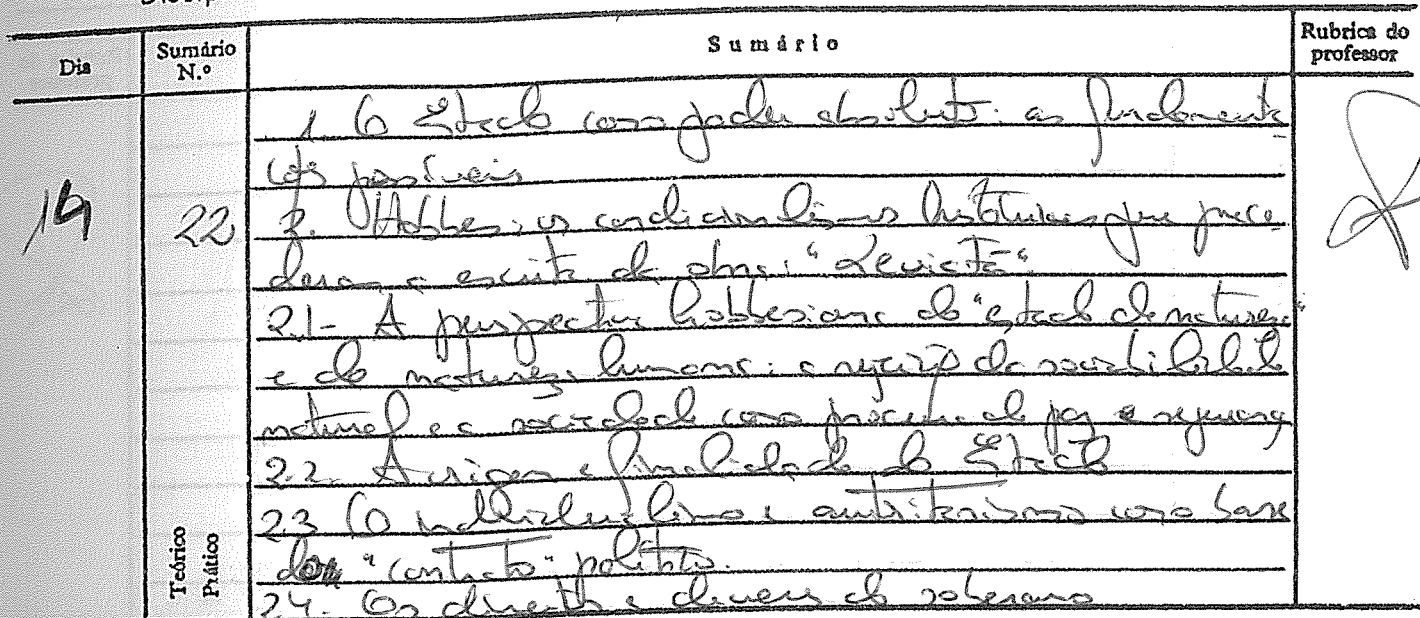 Dia
Sumário N.º
Sumário
Rubrica do professor
14
22
1. O Estado como poder absoluto: as fundamenta
ções possíveis
2. Hobbes: os condicionalismos históricos que prece
deram a escrita da obra: "Leviatã"
2.1- A perspectiva hobbesiana do "estado de natureza"
e da natureza humana: a rejeição da sociabilidade
natural e a sociedade como procura de paz e segurança
2.2. A origem e finalidade do Estado
2.3 O individualismo e autoritarismo como base
do "contrato" político.
2.4. Os direitos e deveres do soberano
Teórico
Prático